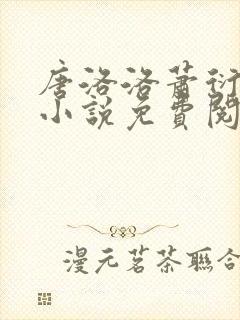 唐洛洛萧衍
小说免费阅
漫元茗茶聯合